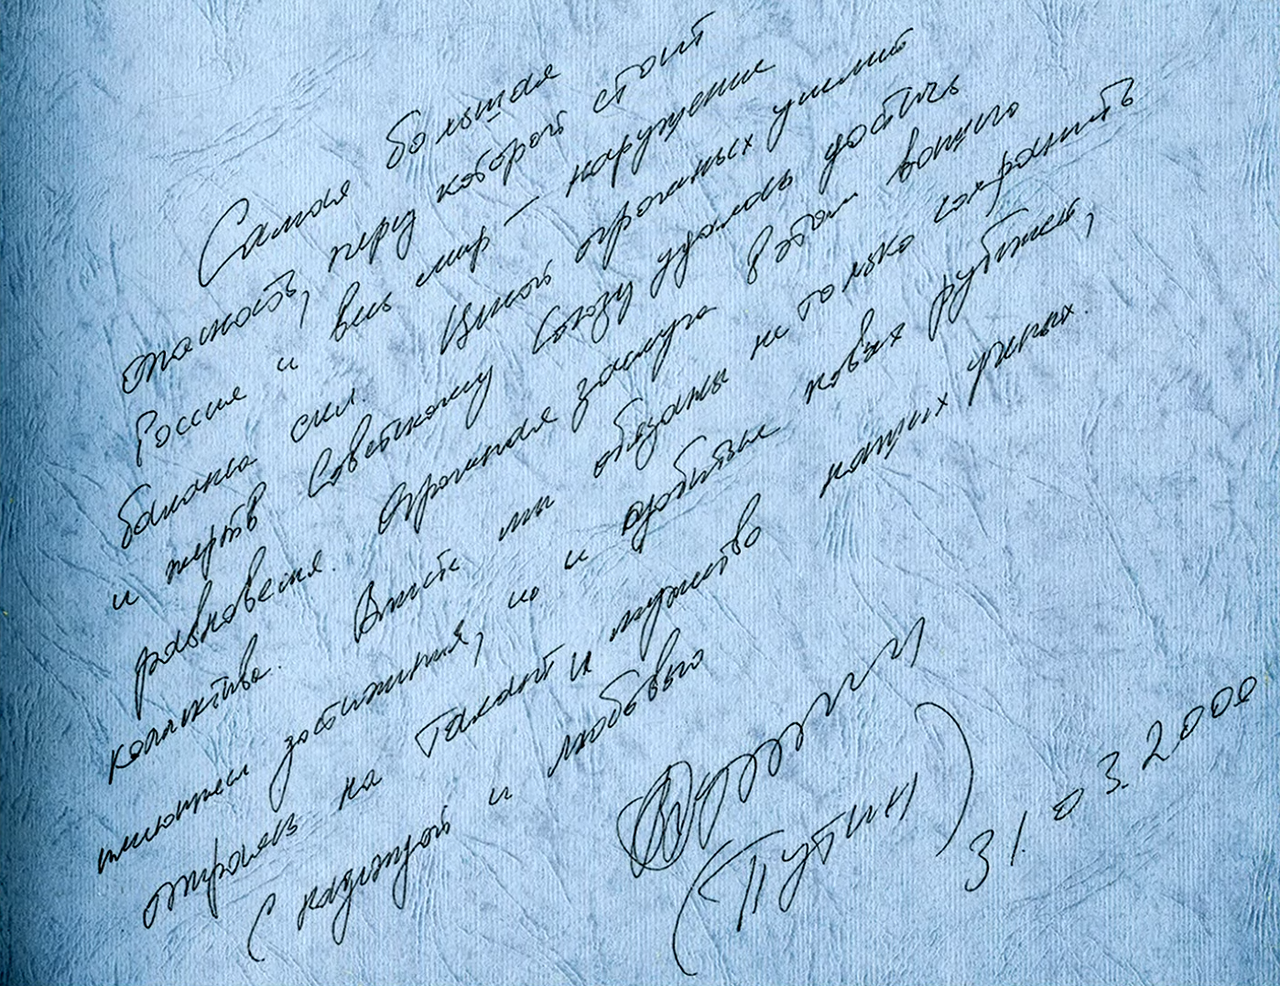 Самая большая
опасность, перед которой стоит
Россия и весь мир – нарушение
баланса сил. Ценой огромных усилий
и жертв Советскому Союзу удалось достичь
равновесия. Огромная заслуга в этом вашего
коллектива. Вместе мы обязаны не только сохранить
имеющиеся достижения, но и добиться новых рубежей,
опираясь на талант и мужество наших ученых.
С надеждой и любовью
(Путин)
31.03.2000